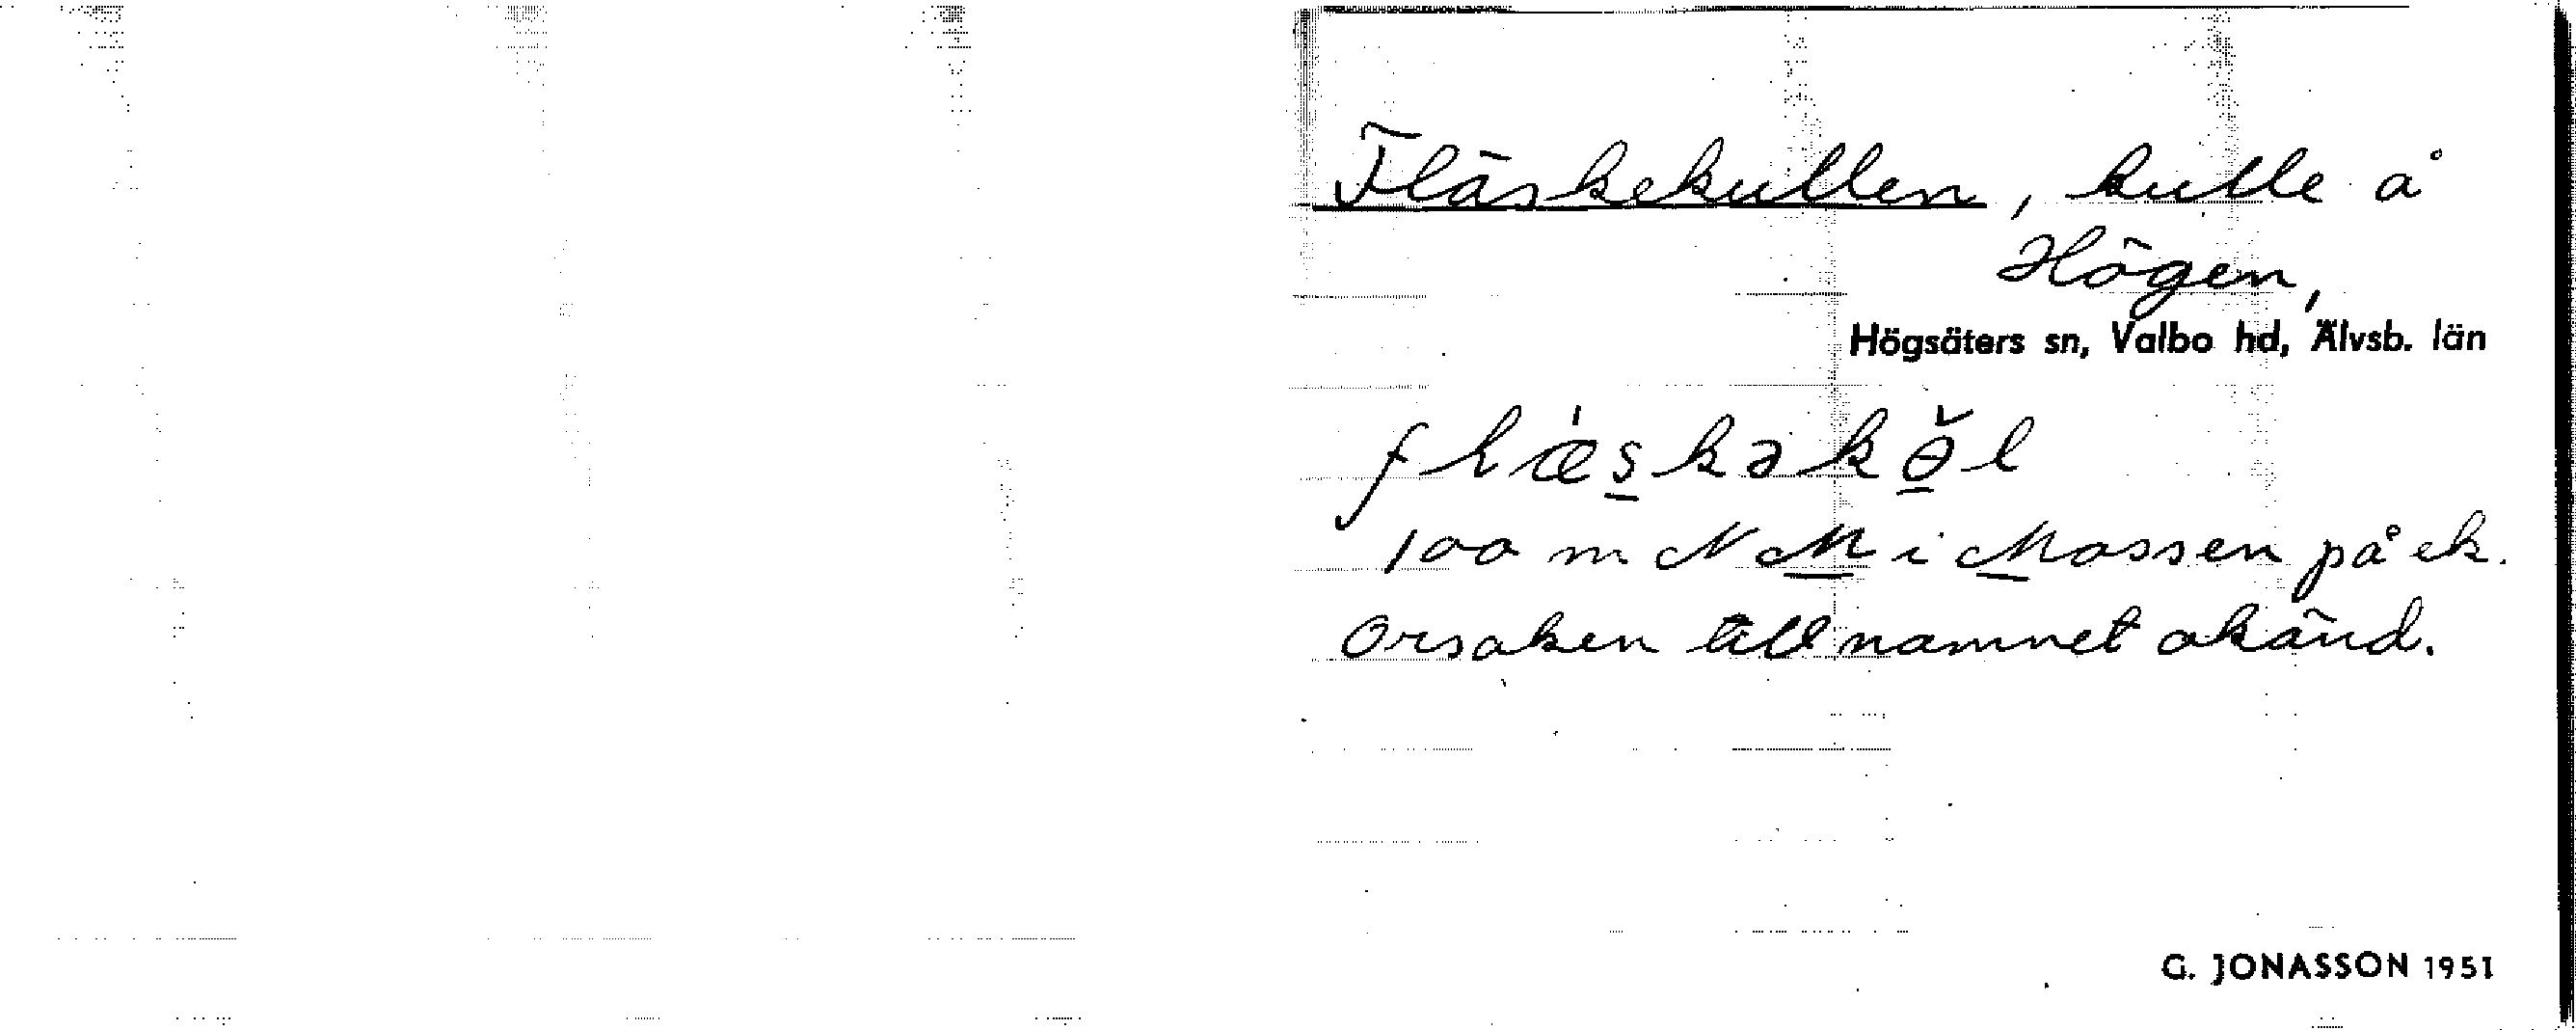 Fläskekullen, kulle å
Högen,
Högsäters sn, Valbo hd, Älvsb. län
100 m N M i Mossen på ek.
Orsaken till namnet okänd.
G. JONASSON 1951